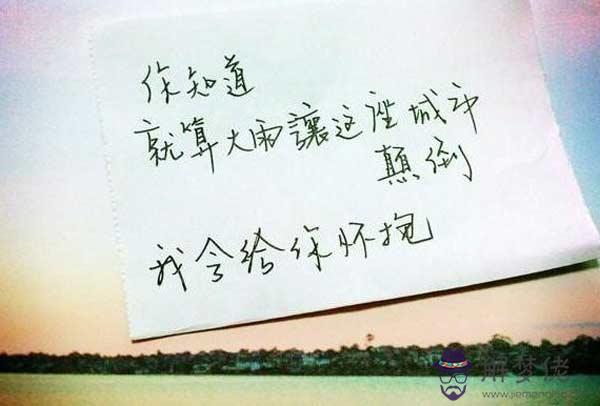 你知道
就算大雨讓这座城市
顛倒
我会给你怀抱
解梦佬
www.jiemenglao.com